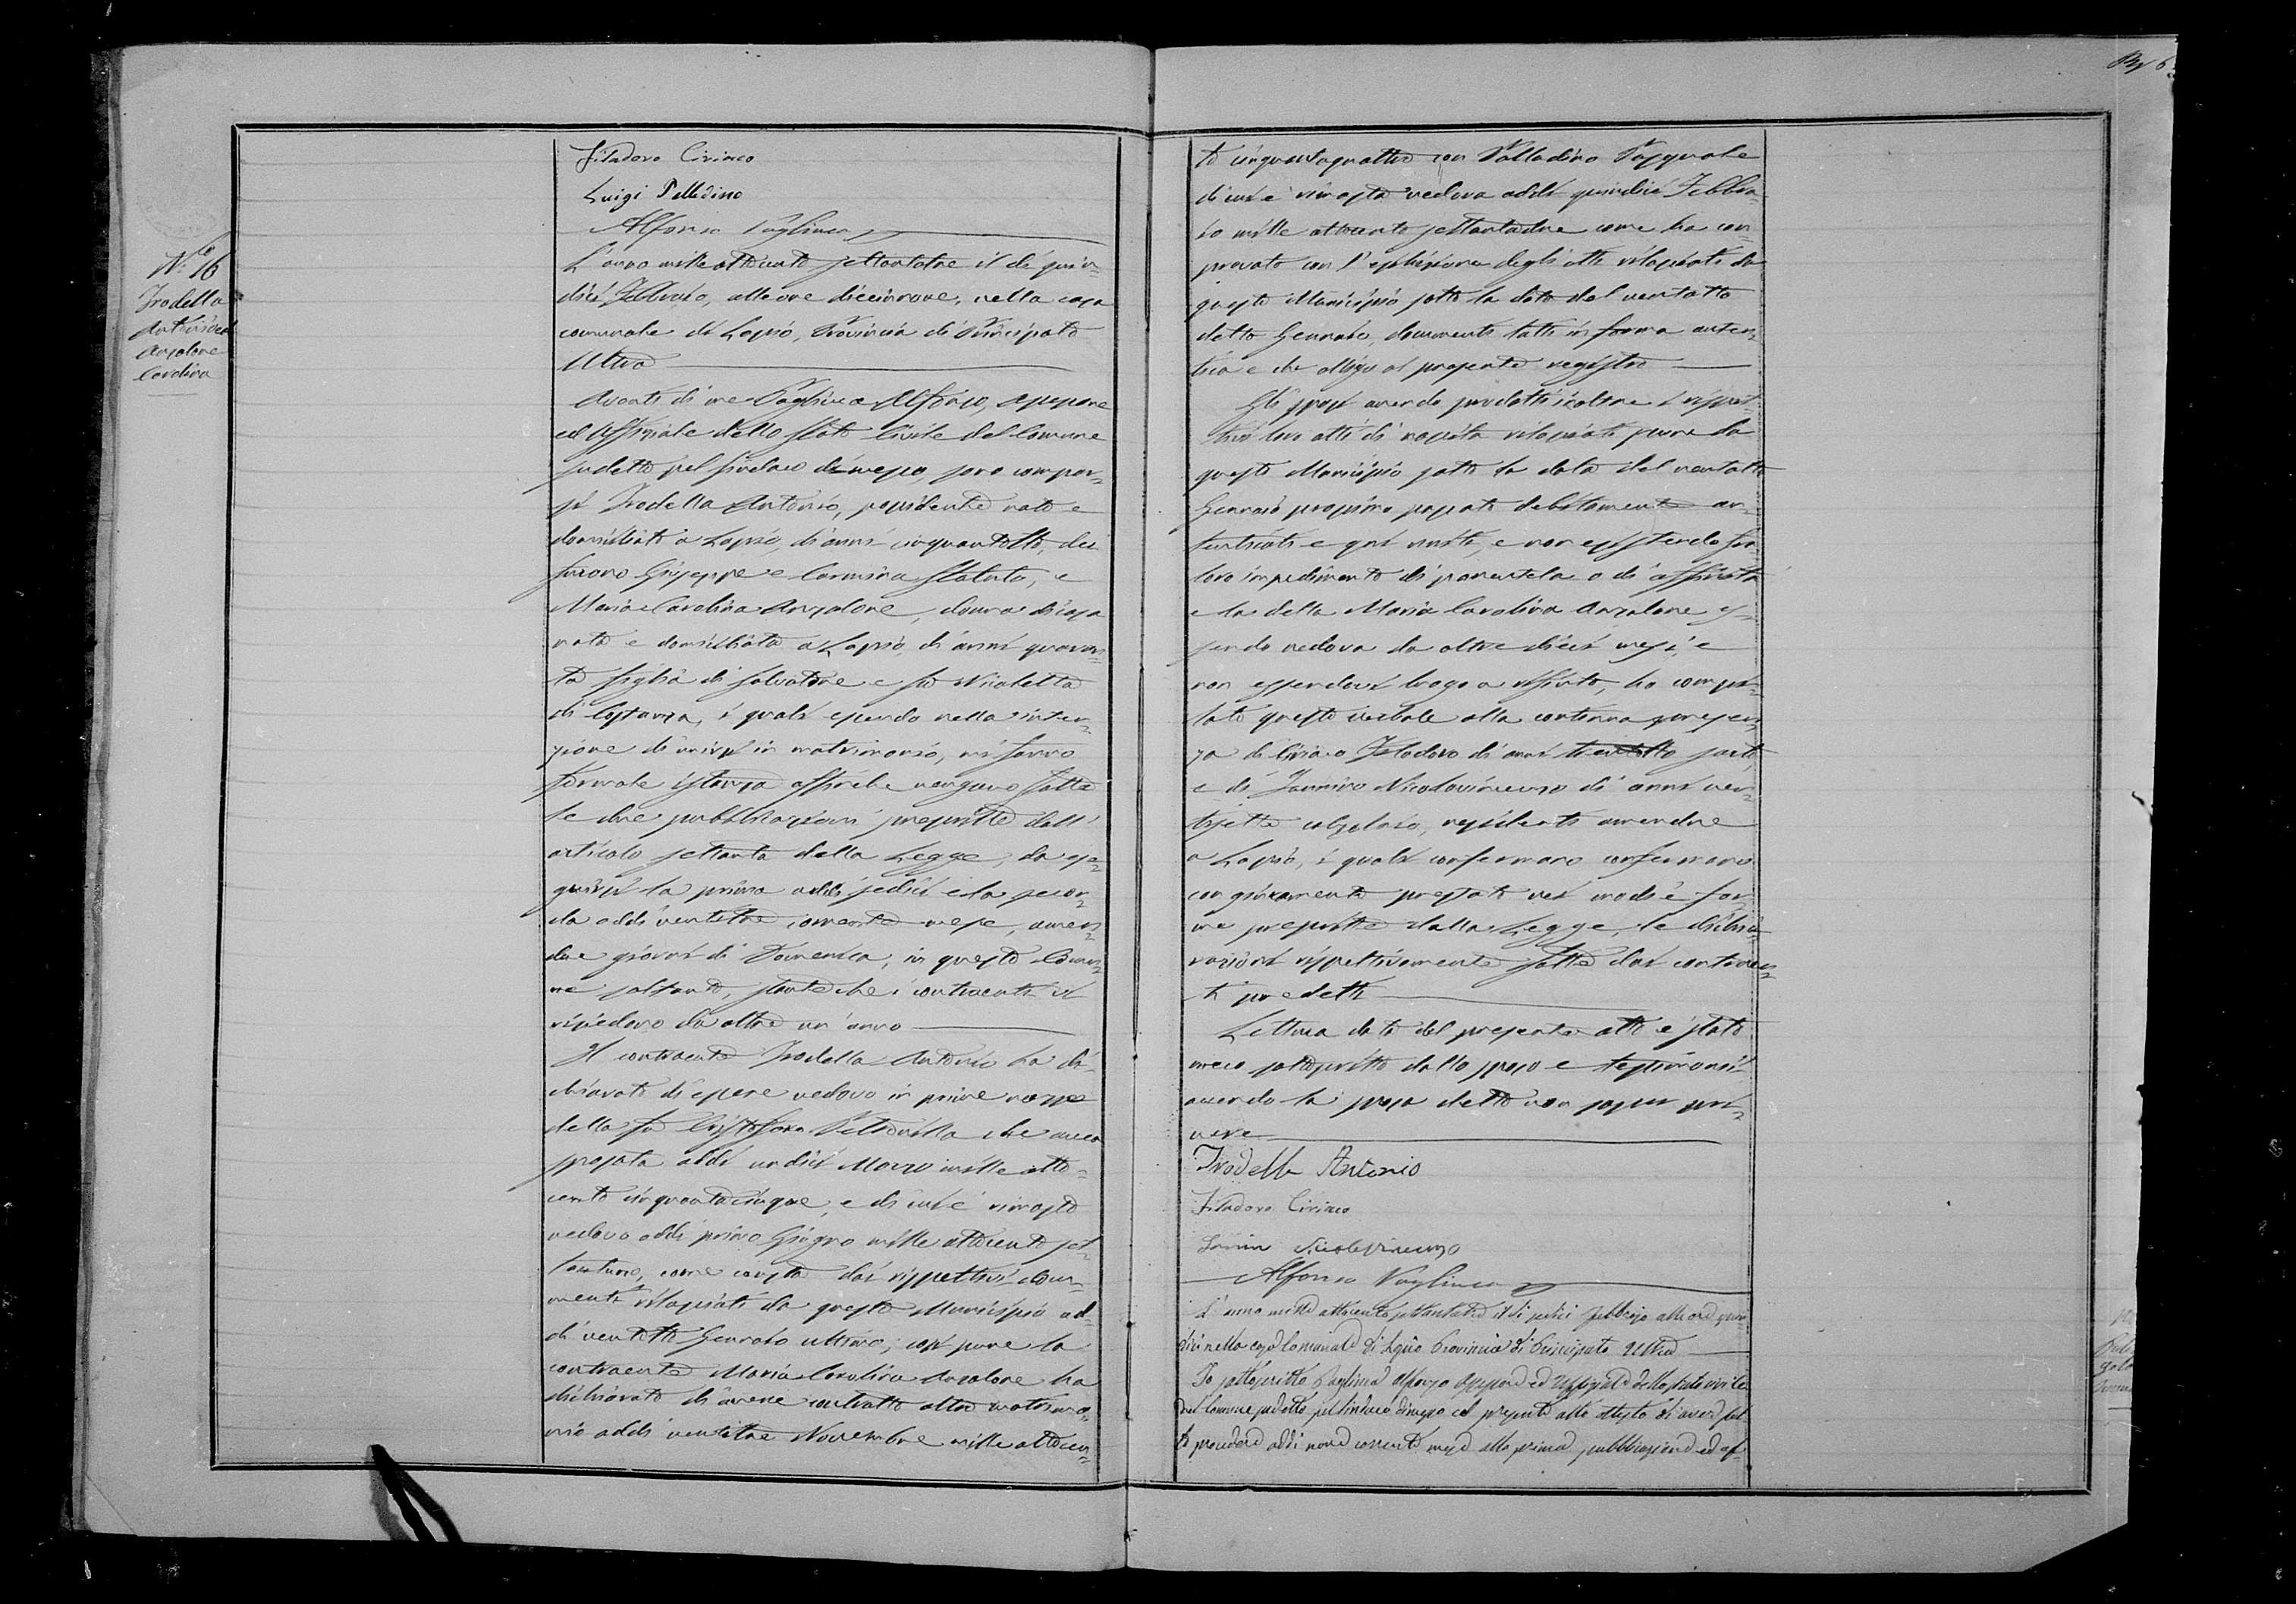 Filadoro Ciriaco
Luigi Palladino
Alfonso Vaglivica
N.° 16
Irodella
Antonio ed
Anzalone
Carolina
L'anno mille ottocento settantatre il dì quin=
dici Febbraio, alle ore diecinnove, nella casa
comunale di Lapio, Provincia di Principato
Ultra
Avanti di me Alfonso, assessore
ed Uffiziale dello Stato Civile del Comune
sudetto pel Sindaco dimesso, sono compar=
si Irodella Antonio, possidente nato e
domiciliato a Lapio, di anni cinquantotto, dei
furono Giuseppe e Carmina, e
Maria Carolina Anzalone, donna di casa
nata e domiciliata a Lapio, di anni quaran=
ta figlia di Salvatore e fu Nicoletta
di Costanza, i quali essendo nella inten=
zione di unirsi in matrimonio, mi fanno
formale istanza affinché vengano fatte
le due pubblicazioni prescritte dall'
articolo settanta della Legge, da ese=
guirsi la prima addì sedici e la secon=
da addì ventitre corrente mese, amen=
due giorni di Domenica, in questo Comu=
ne soltanto, stante che i contraenti vi
risiedono da oltre un'anno
Il contraente Irodella Antonio ha di=
chiarato di essere vedovo in prime nozze
della fu Cristofara che aveva
sposata addì undici Marzo mille otto=
cento cinquantacinque, e di cui è rimasto
vedovo addì primo Giugno mille ottocento set=
tantuno, come consta dai rispettivi docu=
menti rilasciati da questo Municipio ad=
dì ventotto Gennaio ultimo; così pure la
contraente Maria Carolina Anzalone ha
dichiarato di avere contratto altro matrimo=
nio addì ventitre Novembre mille ottocen=
to cinquantaquattro con Palladino Pasquale
di cui è rimasta vedova addì quindici Febbra=
io mille ottocento settantadue come ha com=
provato con l'esibizione degli atti rilasciati da
questo Municipio sotto la data del ventotto
detto Gennaio, documenti tutti in forma auten=
tica e che alligo al presente registro
Gli sposi avendo prodotti inoltre i rispet=
tivi loro atti di nascita rilasciati pure da
questo Municipio sotto la data del ventotto
Gennaio prossimo passato debitamente au=
tenticati e qui uniti, e non esistendo fra
loro impedimento di parentela o di affinità
e la detta Maria Carolina Anzalone es=
sendo vedova da oltre dieci mesi, e
non essendovi luogo a rifiuto, ho compi=
lato questo verbale alla continua presen=
za di Ciriaco Filadoro di anni trentotto sarto,
e di Iannino Nicolavincenzo di anni ven=
tisette calzolaio, residenti amendue
a Lapio, i quali confermano confermano
con giuramento prestato nei modi e for=
me prescritte dalla Legge, le dichia=
razioni rispettivamente fatte dai contraen=
ti predetti
Lettura data del presente atto è stato
meco sottoscritto dallo sposo e testimoni
avendo la sposa detto non saper scri=
vere
Irodella Antonio
Filadoro Ciriaco
Iannin Nicolavincenzo
Alfonso Vaglivica
L'anno mille ottocento settantatre il dì sedici Febbrajo alle ore quin=
dici nella casa Comunale di Lapio Provincia di Principato Ultra
Io sottoscritto Alfonso Assessore ed Uffiziale dello Stato civile
del Comune sudetto pel Sindaco dimesso col presente atto attesto di aver fat=
to procedere addì nove corrente mese alla prima pubblicazione ed af=